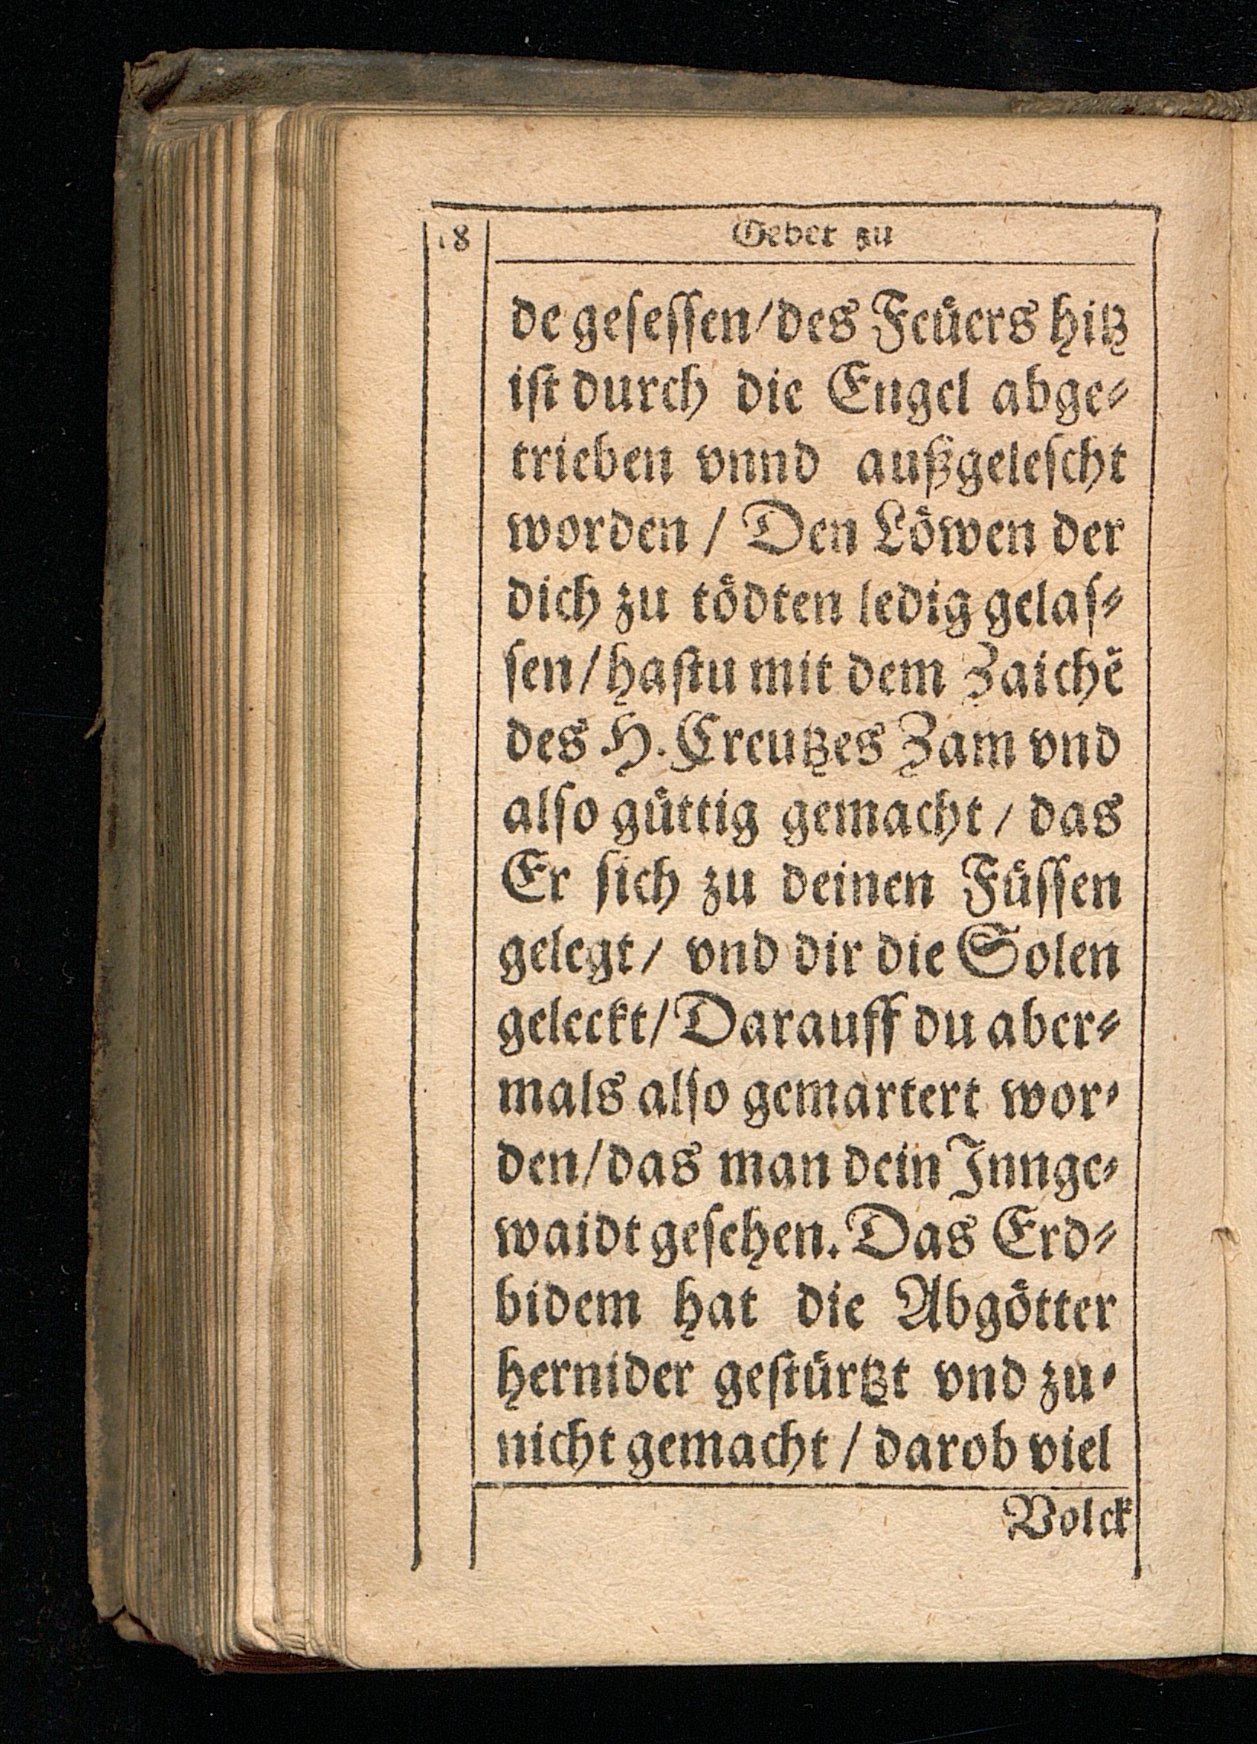 18 Gebet zu
de geſeſſen/des Feuͤers hitz
iſt durch die Engel abge⸗
trieben vnnd außgeleſcht
worden / Den Loͤwen der
dich zu toͤdten ledig gelaſ⸗
ſen/haſtu mit dem Zaichẽ
des H. Creutzes Zam vnd
alſo guͤttig gemacht / das
Er ſich zu deinen Fuͤſſen
gelegt/ vnd dir die Solen
geleckt/Darauff du aber⸗
mals alſo gemartert wor⸗
den/das man dein Innge⸗
waidt geſehen. Das Erd⸗
bidem hat die Abgoͤtter
hernider geſtuͤrtzt vnd zu⸗
nicht gemacht / darob viel
Volck